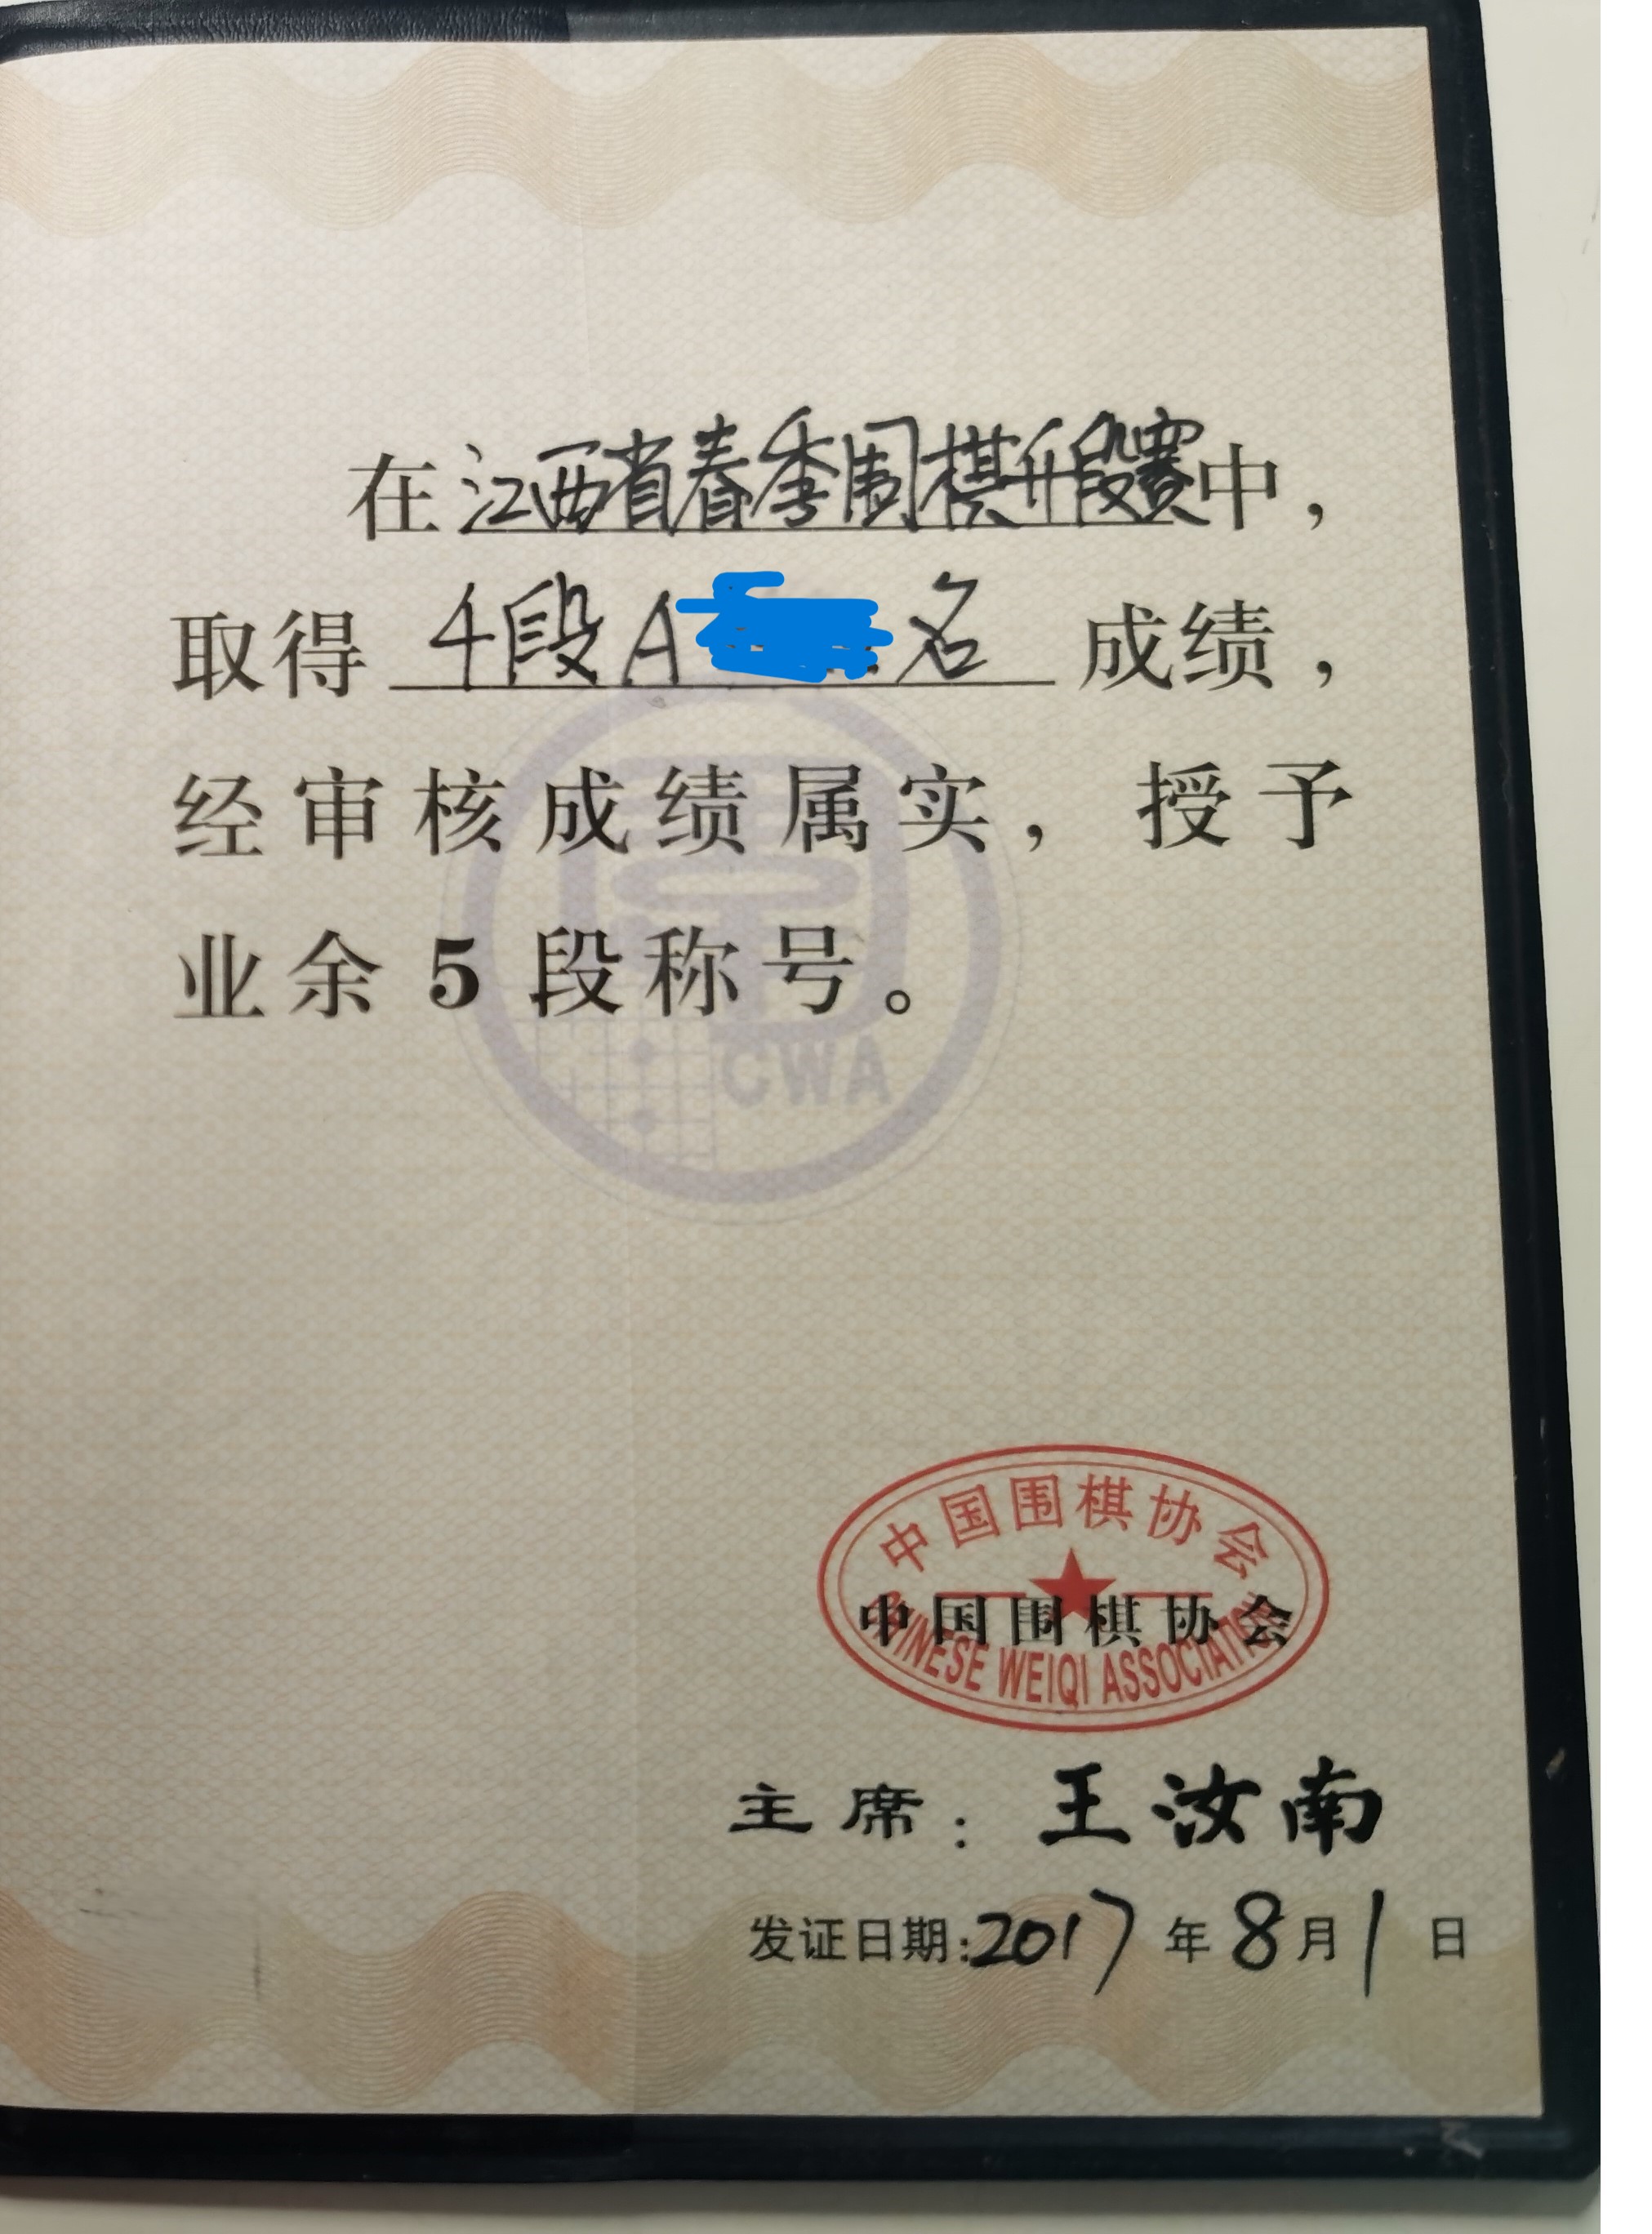 在江西省春季围棋升段赛中，
取得 4段A 名 成绩，
经审核成绩属实，授予
业余5段称号。
CWA
中国围棋协会
中国围棋协会
CHINESE WEIQI ASSOCIATION
主席：王汝南
发证日期:2017年8月1日